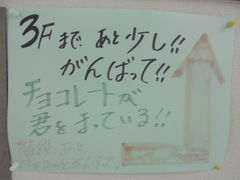 3Fまで あと少し!!
がんばって!!
チョコレートが
君をまっている!!